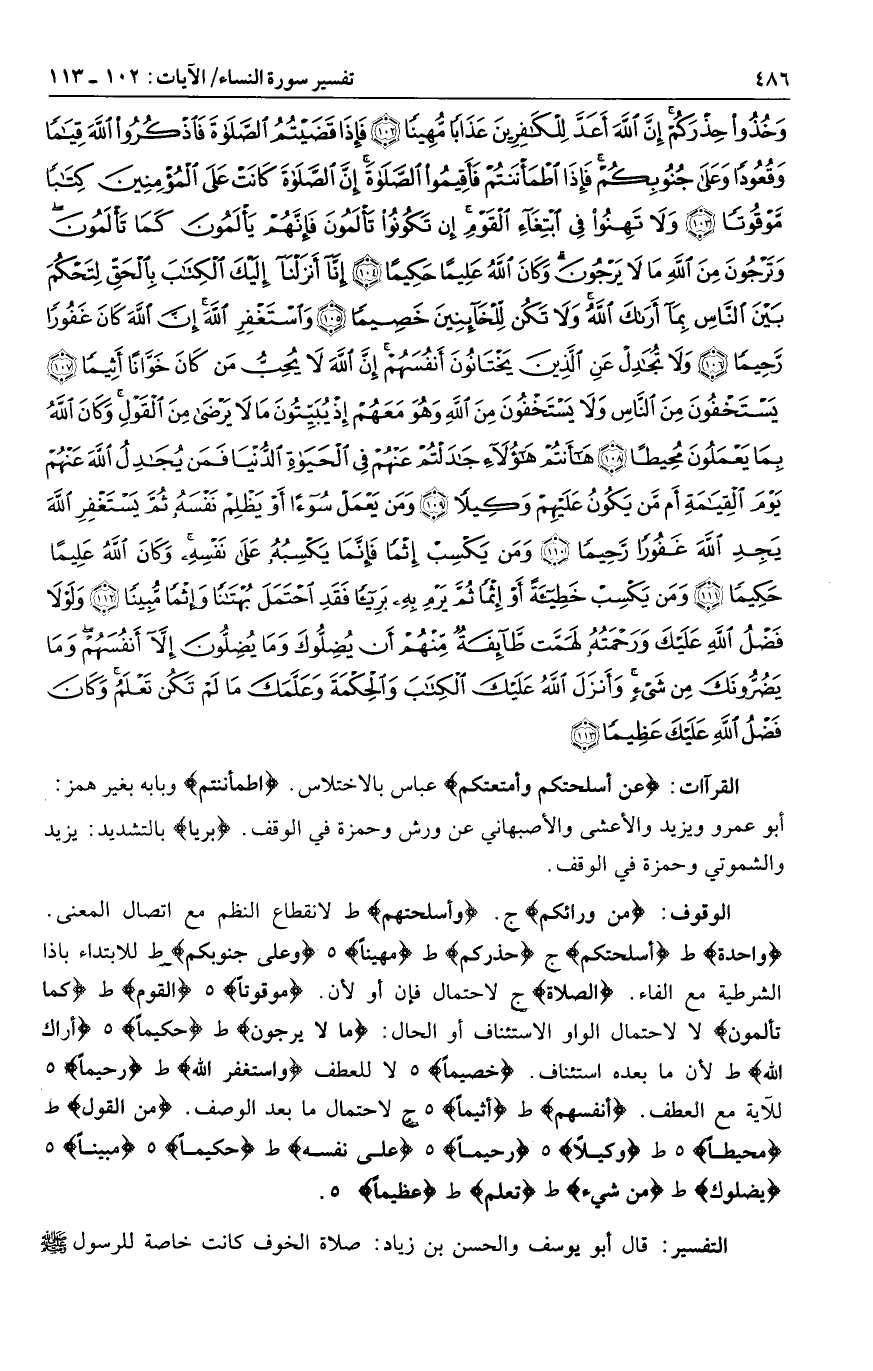 ٤٨٦ تفسير سورة النساء/ الآيات: ١٠٢ ـ ١١٣
وَخُذُوا۟ حِذْرَكُمْ ۗ إِنَّ ٱللَّهَ أَعَدَّ لِلْكَـٰفِرِينَ عَذَابًا مُّهِينًا ﴿١٠٢﴾ فَإِذَا قَضَيْتُمُ ٱلصَّلَوٰةَ فَٱذْكُرُوا۟ ٱللَّهَ قِيَـٰمًا
وَقُعُودًا وَعَلَىٰ جُنُوبِكُمْ ۚ فَإِذَا ٱطْمَأْنَنتُمْ فَأَقِيمُوا۟ ٱلصَّلَوٰةَ ۚ إِنَّ ٱلصَّلَوٰةَ كَانَتْ عَلَى ٱلْمُؤْمِنِينَ كِتَـٰبًا
مَّوْقُوتًا ﴿١٠٣﴾ وَلَا تَهِنُوا۟ فِى ٱبْتِغَآءِ ٱلْقَوْمِ ۖ إِن تَكُونُوا۟ تَأْلَمُونَ فَإِنَّهُمْ يَأْلَمُونَ كَمَا تَأْلَمُونَ ۖ
وَتَرْجُونَ مِنَ ٱللَّهِ مَا لَا يَرْجُونَ ۗ وَكَانَ ٱللَّهُ عَلِيمًا حَكِيمًا ﴿١٠٤﴾ إِنَّآ أَنزَلْنَآ إِلَيْكَ ٱلْكِتَـٰبَ بِٱلْحَقِّ لِتَحْكُمَ
بَيْنَ ٱلنَّاسِ بِمَآ أَرَىٰكَ ٱللَّهُ ۚ وَلَا تَكُن لِّلْخَآئِنِينَ خَصِيمًا ﴿١٠٥﴾ وَٱسْتَغْفِرِ ٱللَّهَ ۖ إِنَّ ٱللَّهَ كَانَ غَفُورًا
رَّحِيمًا ﴿١٠٦﴾ وَلَا تُجَـٰدِلْ عَنِ ٱلَّذِينَ يَخْتَانُونَ أَنفُسَهُمْ ۚ إِنَّ ٱللَّهَ لَا يُحِبُّ مَن كَانَ خَوَّانًا أَثِيمًا ﴿١٠٧﴾
يَسْتَخْفُونَ مِنَ ٱلنَّاسِ وَلَا يَسْتَخْفُونَ مِنَ ٱللَّهِ وَهُوَ مَعَهُمْ إِذْ يُبَيِّتُونَ مَا لَا يَرْضَىٰ مِنَ ٱلْقَوْلِ ۚ وَكَانَ ٱللَّهُ
بِمَا يَعْمَلُونَ مُحِيطًا ﴿١٠٨﴾ هَـٰٓأَنتُمْ هَـٰٓؤُلَآءِ جَـٰدَلْتُمْ عَنْهُمْ فِى ٱلْحَيَوٰةِ ٱلدُّنْيَا فَمَن يُجَـٰدِلُ ٱللَّهَ عَنْهُمْ
يَوْمَ ٱلْقِيَـٰمَةِ أَم مَّن يَكُونُ عَلَيْهِمْ وَكِيلًا ﴿١٠٩﴾ وَمَن يَعْمَلْ سُوٓءًا أَوْ يَظْلِمْ نَفْسَهُۥ ثُمَّ يَسْتَغْفِرِ ٱللَّهَ
يَجِدِ ٱللَّهَ غَفُورًا رَّحِيمًا ﴿١١٠﴾ وَمَن يَكْسِبْ إِثْمًا فَإِنَّمَا يَكْسِبُهُۥ عَلَىٰ نَفْسِهِۦ ۚ وَكَانَ ٱللَّهُ عَلِيمًا
حَكِيمًا ﴿١١١﴾ وَمَن يَكْسِبْ خَطِيٓـَٔةً أَوْ إِثْمًا ثُمَّ يَرْمِ بِهِۦ بَرِيٓـًٔا فَقَدِ ٱحْتَمَلَ بُهْتَـٰنًا وَإِثْمًا مُّبِينًا ﴿١١٢﴾ وَلَوْلَا
فَضْلُ ٱللَّهِ عَلَيْكَ وَرَحْمَتُهُۥ لَهَمَّت طَّآئِفَةٌ مِّنْهُمْ أَن يُضِلُّوكَ وَمَا يُضِلُّونَ إِلَّآ أَنفُسَهُمْ ۖ وَمَا
يَضُرُّونَكَ مِن شَىْءٍ ۚ وَأَنزَلَ ٱللَّهُ عَلَيْكَ ٱلْكِتَـٰبَ وَٱلْحِكْمَةَ وَعَلَّمَكَ مَا لَمْ تَكُن تَعْلَمُ ۚ وَكَانَ
فَضْلُ ٱللَّهِ عَلَيْكَ عَظِيمًا ﴿١١٣﴾
القرآات: ﴿عن أسلحتكم وأمتعتكم﴾ عباس بالاختلاس. ﴿اطمأننتم﴾ وبابه بغير همز:
أبو عمرو ويزيد والأعشى والأصبهاني عن ورش وحمزة في الوقف. ﴿بريا﴾ بالتشديد: يزيد
والشموتي وحمزة في الوقف.
الوقوف: ﴿من ورائكم﴾ ج. ﴿وأسلحتهم﴾ ط لانقطاع النظم مع اتصال المعنى.
﴿واحدة﴾ ط ﴿أسلحتكم﴾ ج ﴿حذركم﴾ ط ﴿مهيناً﴾ ٥ ﴿وعلى جنوبكم﴾ ط للابتداء باذا
الشرطية مع الفاء. ﴿الصلاة﴾ ج لاحتمال فإن أو لأن. ﴿موقوتاً﴾ ٥ ﴿القوم﴾ ط ﴿كما
تألمون﴾ لا لاحتمال الواو الاستئناف أو الحال: ﴿ما لا يرجون﴾ ط ﴿حكيماً﴾ ٥ ﴿أراك
الله﴾ ط لأن ما بعده استئناف. ﴿خصيماً﴾ ٥ لا للعطف ﴿واستغفر الله﴾ ط ﴿رحيماً﴾ ٥
للآية مع العطف. ﴿أنفسهم﴾ ط ﴿أثيماً﴾ ٥ ج لاحتمال ما بعد الوصف. ﴿من القول﴾ ط
﴿محيطاً﴾ ٥ ط ﴿وكيلاً﴾ ٥ ﴿رحيماً﴾ ٥ ﴿على نفسه﴾ ط ﴿حكيماً﴾ ٥ ﴿مبيناً﴾ ٥
﴿يضلوك﴾ ط ﴿من شيء﴾ ط ﴿تعلم﴾ ط ﴿عظيماً﴾ ٥.
التفسير: قال أبو يوسف والحسن بن زياد: صلاة الخوف كانت خاصة للرسول ﷺ